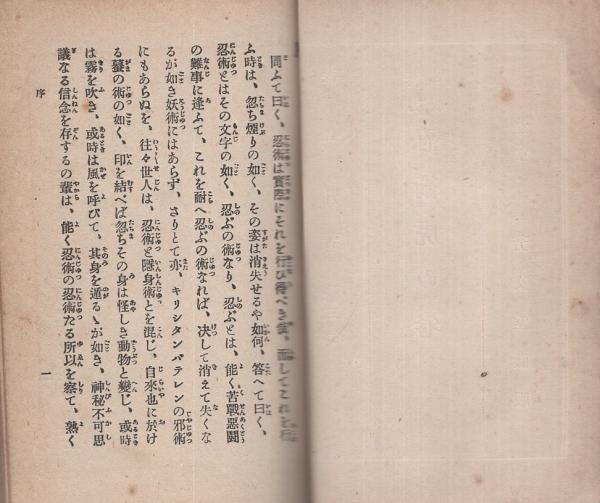 問ふて曰く、忍術は實際にそれを行ひ得べき
ふ時は、忽ち煙りの如く、その姿は消失せるや如何、答へて曰く、
忍術とはその文字の如く、忍ぶの術なり、忍ぶとは、能く苦戰惡鬪
の難事に逢ふて、これを耐へ忍ぶの術なれば、决して消えて失くな
るが如き妖術にはあらず、さりとて亦、キリシタンバテレンの邪術
にもあらぬを、往々世人は、忍術と隱身術とを混じ、自來也に於け
る蟇の術の如く、印を結べば忽ちその身は怪しき動物と變じ、或時
は霧を吹き、或時は風を呼びて、其身を遁るゝが如き、神秘不可思
議なる信念を存するの輩は、能く忍術の忍術たる所以を察て、熟く
序
一